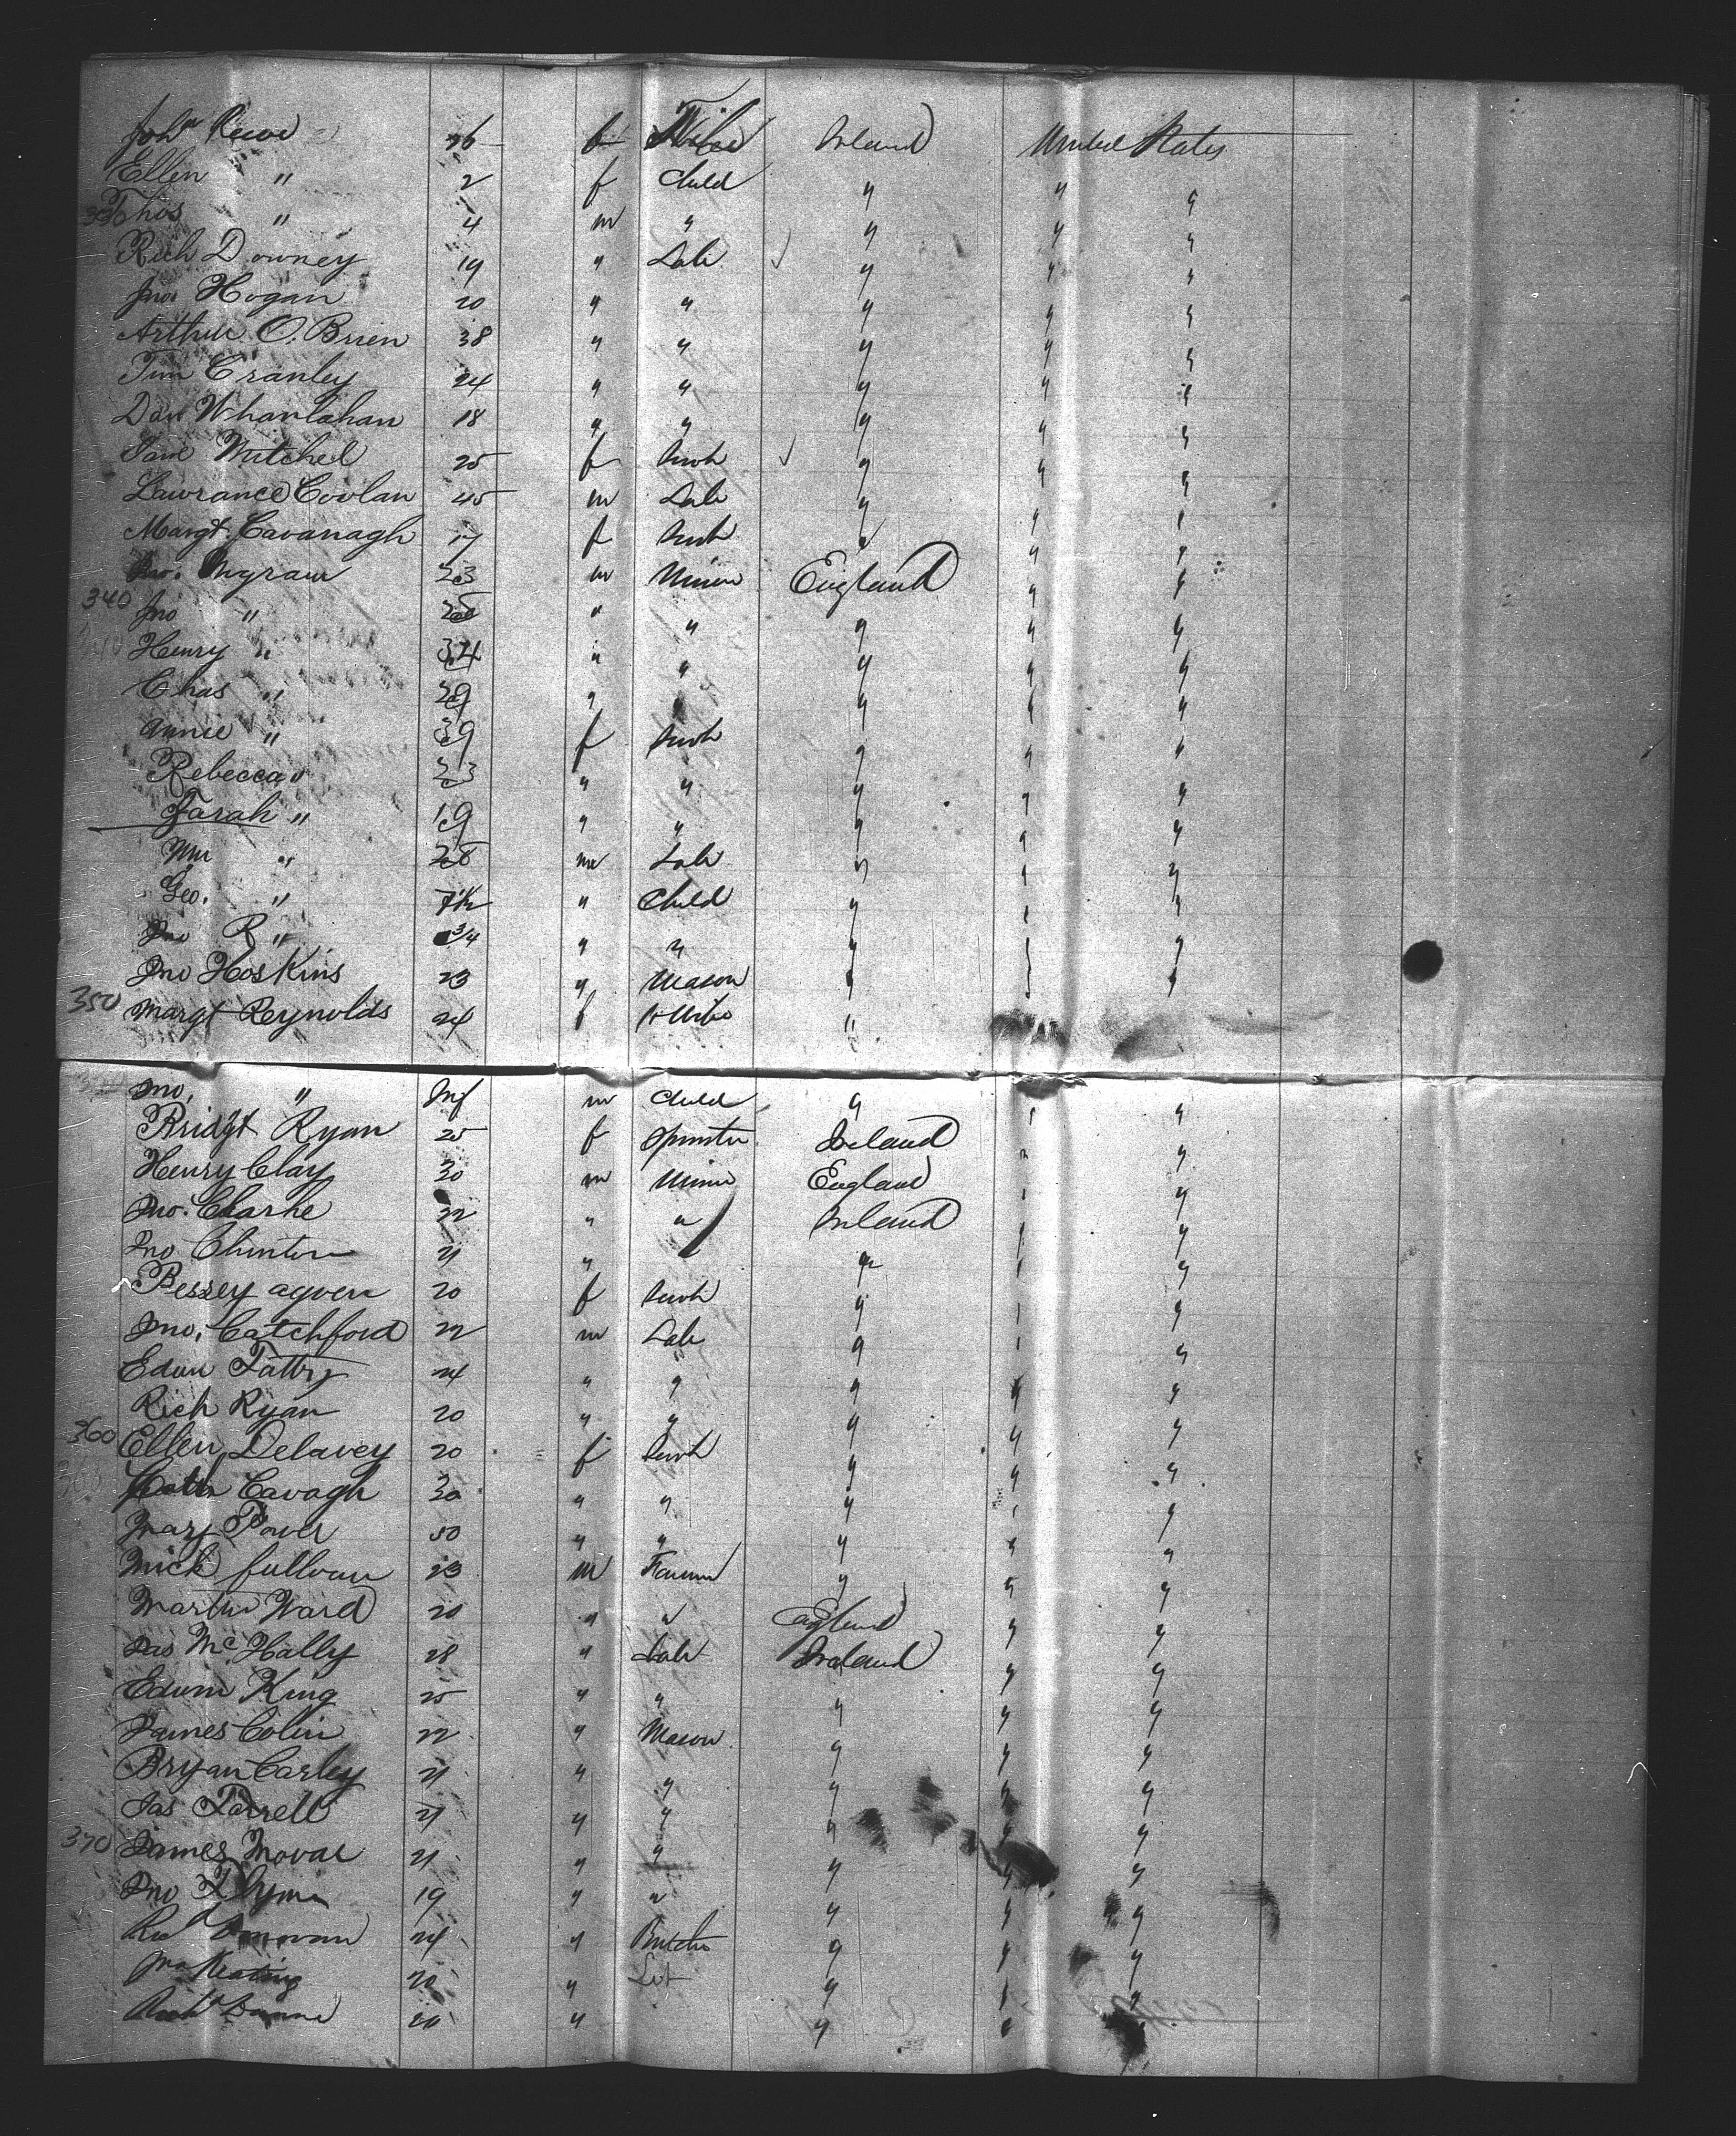 Joh 26 f Wife Ireland United States
Ellen " 2 f Child " " "
330 Thos " 4 m " " " "
Rich Downey 19 " Lab " " "
Jno. Hogan 20 " " " " "
Arthur O. Brien 38 " " " " "
Tim Cranley 24 " " " " "
Dan Whanlahan 18 " " " " "
Jane Mitchel 25 f " " "
Lawrance Coolan 45 m Lab " " "
Margt. Cavanagh 17 f " "
Jno. Ingram 23 m Miner England " "
340 Jno " " " " " "
Henry " 34 " " " " "
Chas " 29 " " " " "
Annie " 39 f " " "
Rebecca " 23 " " " " "
Sarah " 19 " " " " "
Wm " 28 m Lab " " "
Geo. " " Child " " "
Jno R " 3/4 " " " " "
Jno Hoskins 23 " Mason " " "
350 Margt Reynolds 24 f "
Jno. " Inf m Child " " "
Bridgt Ryan 25 f Spinster Ireland " "
Henry Clay 30 m Miner England " "
Jno. Clarke 22 " " Ireland " "
Jno Clinton 21 " " " "
Bessey 20 f " " "
Jno. Catchford 22 m Lab " " "
Edw 24 " " " " "
Rich Ryan 20 " " " " "
360 Ellen Delavey 20 f " " "
Cath Cavagh 30 " " " " "
Mary Power 50 " " " " "
Mick 23 m Farmer " " "
Martin Ward 20 " " England " "
Jas McHally 28 " Lab Ireland " "
Edwin King 25 " " " " "
James Colin 22 " Mason " " "
Bryan Carley 21 " " " " "
Jas Farrell 21 " " " " "
370 James 21 " " " " "
Jno Flynn 19 " " " " "
Donovan 24 " Butcher " " "
Jno Keating 20 " " " "
20 " " " "